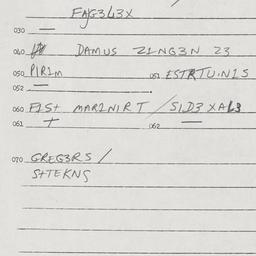 FAG3L3X
030 —
040 DAMUS Z1NG3N 23
050 P1R1M 051 ESTRTU.N1S
052 —
060 F1St MAR1N1RT / S1D3XAL3
061 + 062 —
070 GREG3RS /
StTEKNS